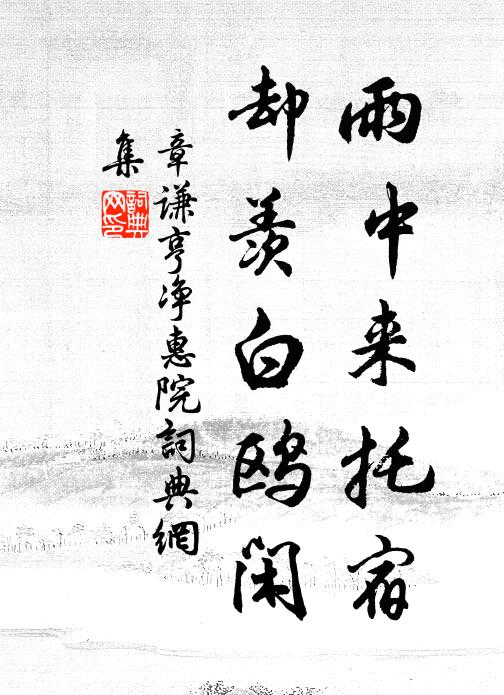 雨中来托宿
却羡白鸥闲
章謙亨净惠院詞典網
集
詞典網印